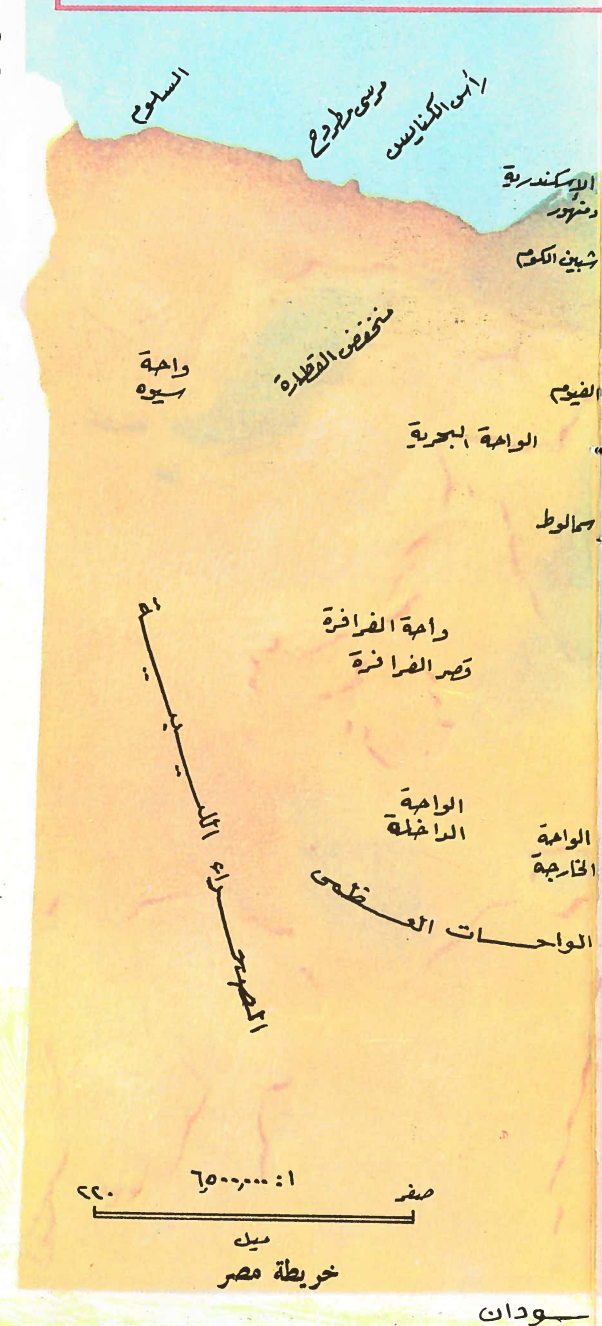 السلوم
مرسى مطروح
رأس الكنايس
الإسكندرية
دمنهور
شبين الكوم
منخفض القطارة
واحة
سيوه
الفيوم
الواحة البحرية
سمالوط
واحة الفرافرة
قصر الفرافرة
الواحة
الداخلة
الواحة
الخارجة
الواحات العظمى
الصحراء الليبية
١ : ٦,٥٠٠,٠٠٠
صفر
٢٢٠
ميل
خريطة مصر
سودان